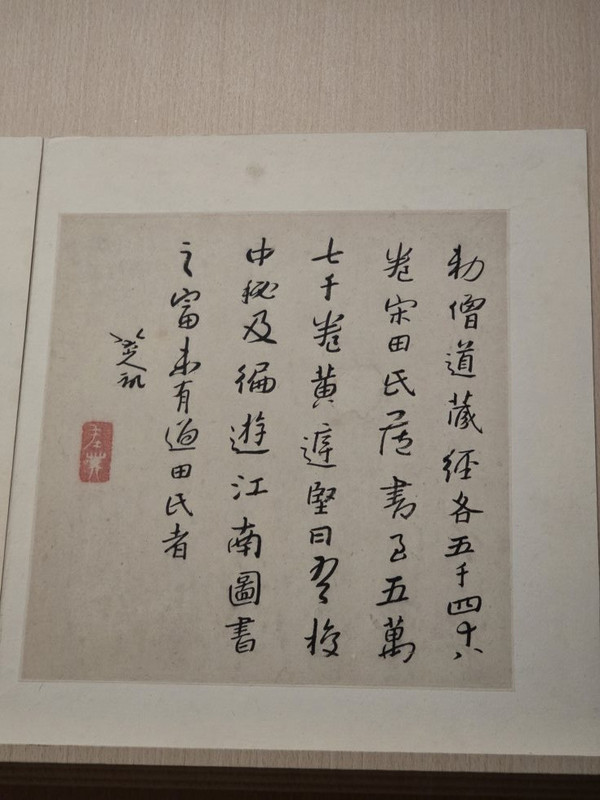 勅僧道藏經各五千四十八
卷宋田氏書至五萬
七千卷黃庭堅曰吾校
中秘及徧遊江南圖書
之富未有過田氏者
八大山人記